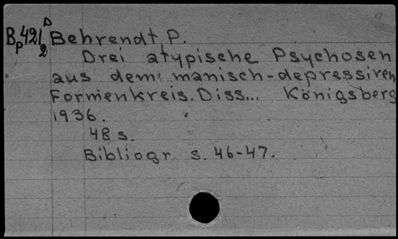 Bp421 D/2 Behrendt P.
Drei atypische Psychosen
aus dem manisch-depressiven
Formenkreis. Diss... Königsberg
1936.
48 s.
Bibliogr. s. 46-47.